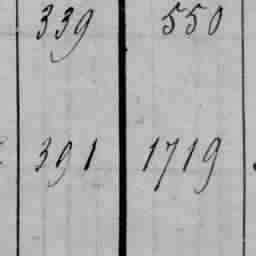 339 550
391 1719